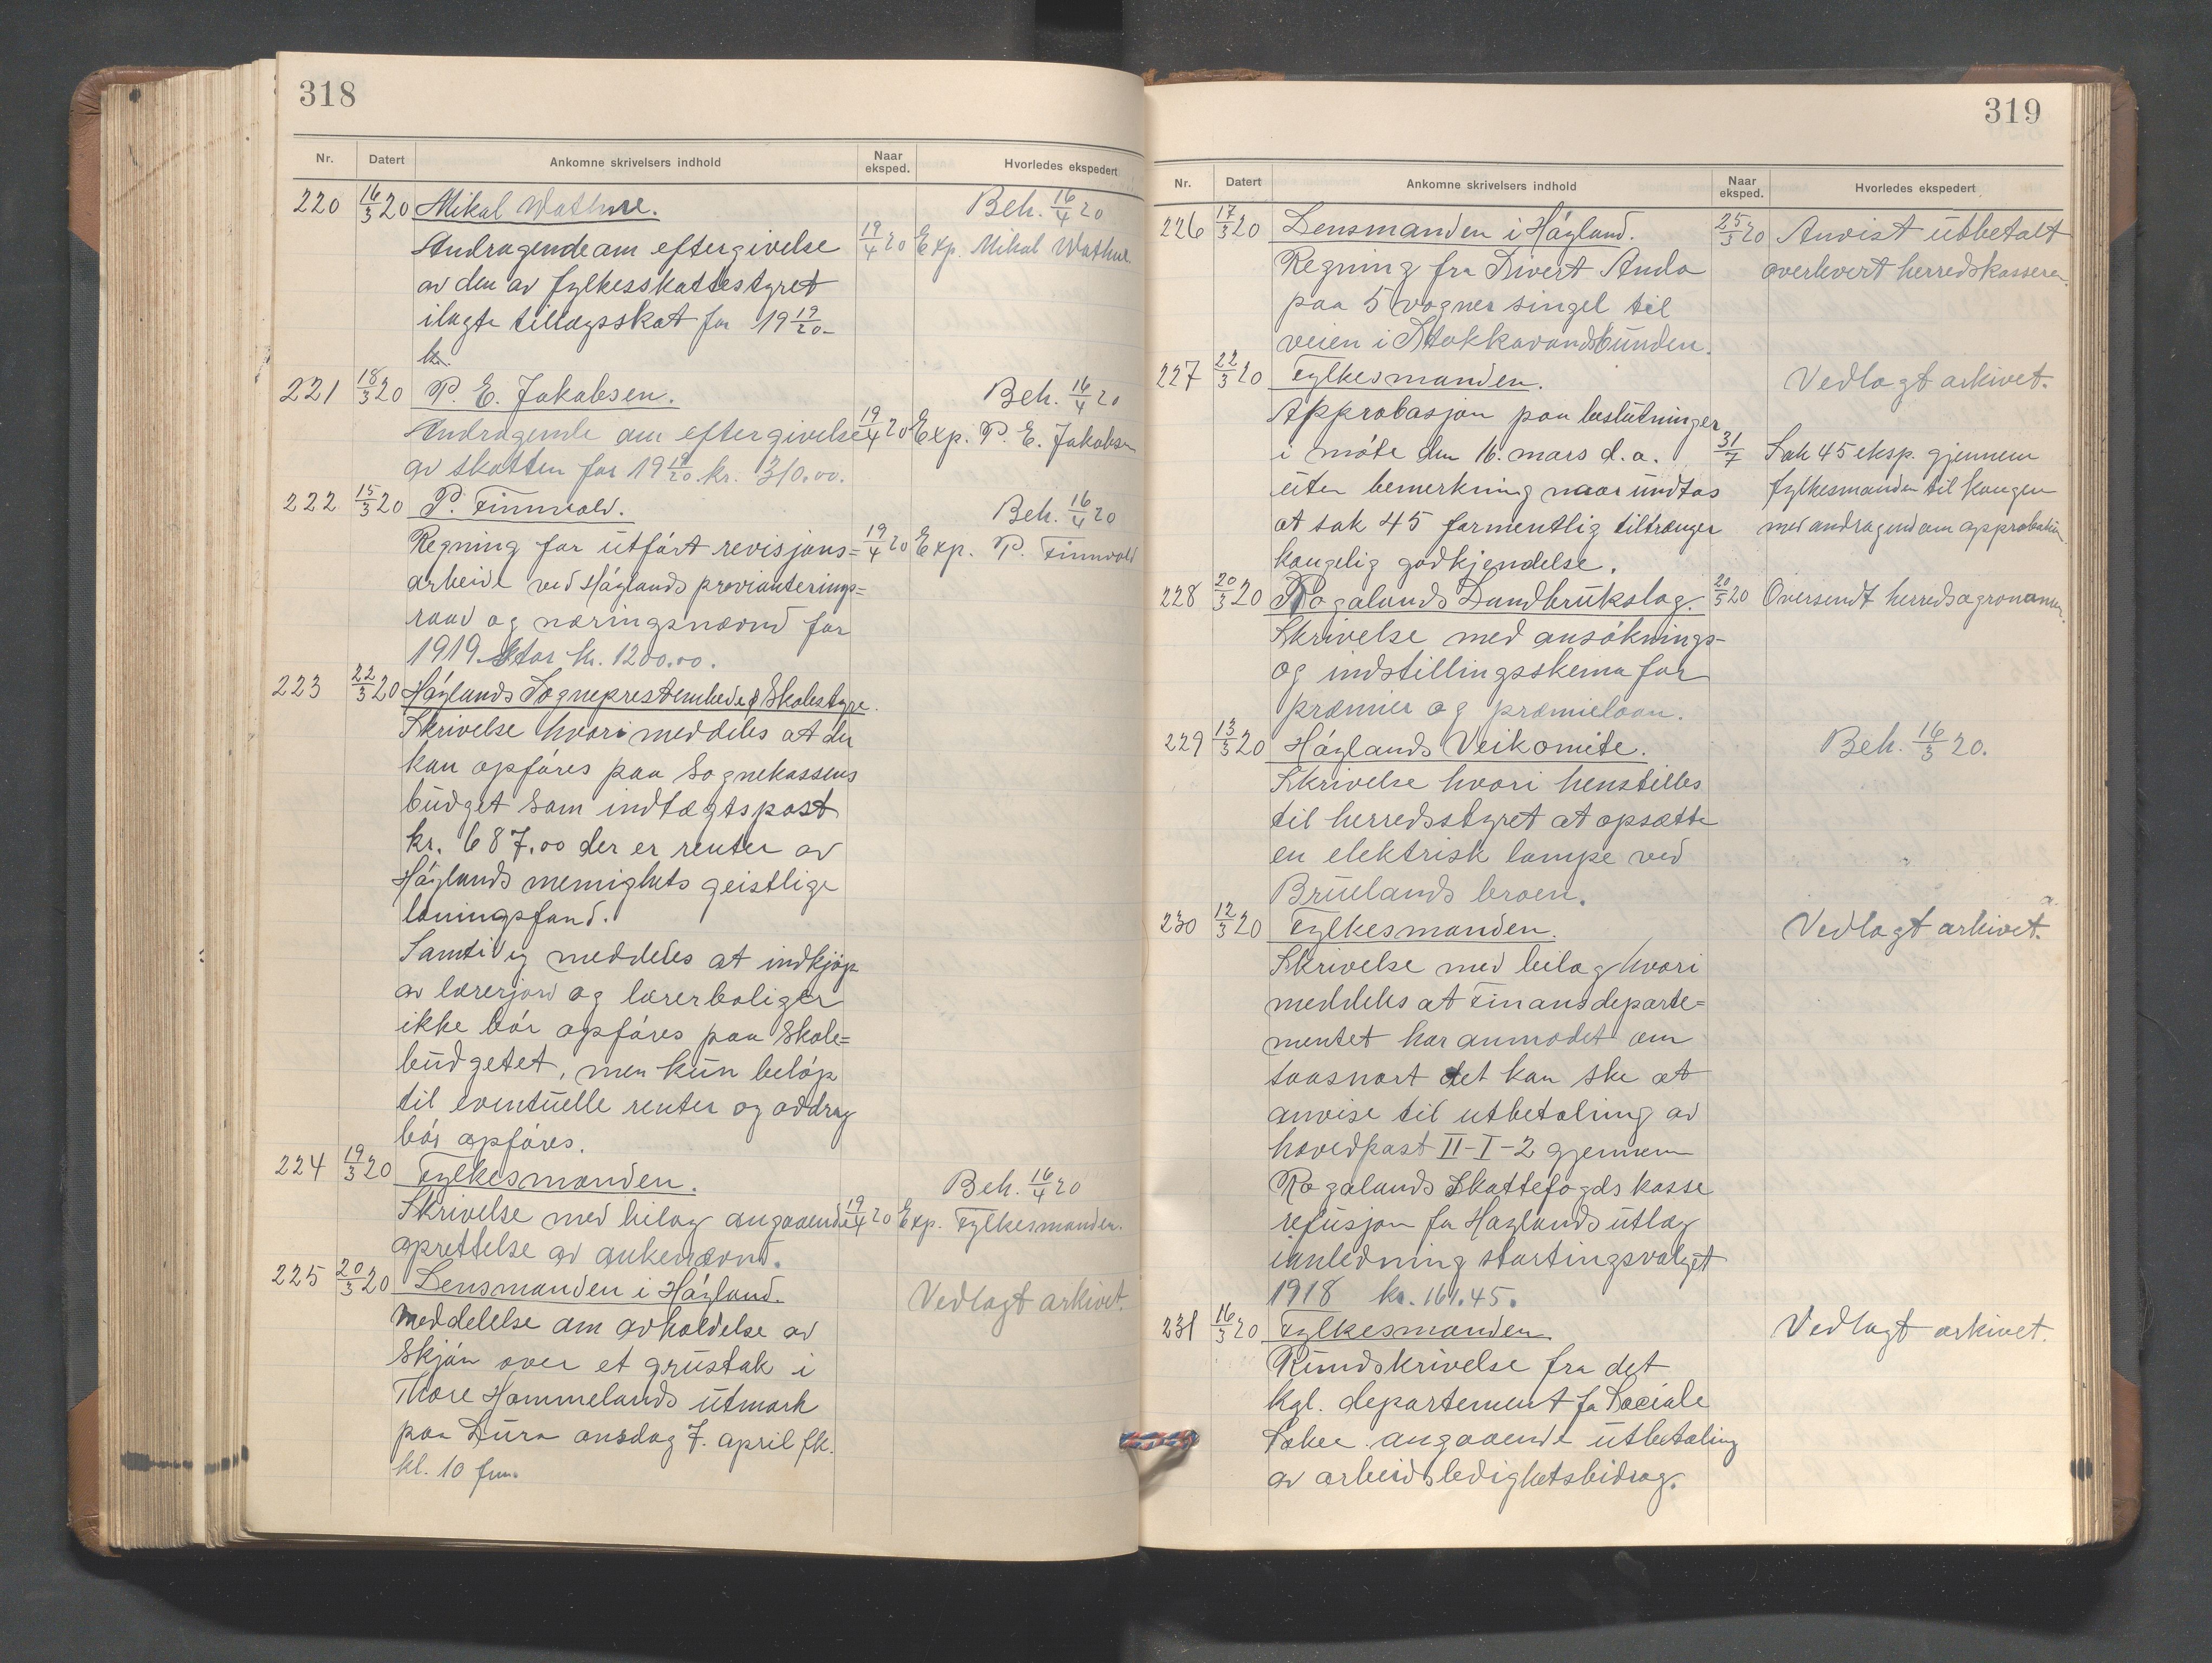 318
Nr. Datert Ankomne skrivelsers indhold Naar eksped. Hvorledes ekspedert
220 16/3 20 Mikal Wathne. Beh. 16/4 20
Andragende om eftergivelse 19/4 20 Exp. Mikal Wathne
av den av fylkesskattestyret
ilagte tillægsskat for 19 19/20
kr.
221 18/3 20 P. E. Jakobsen. Beh. 16/4 20
Andragende om eftergivelse 19/4 20 Exp. P. E. Jakobsen
av skatten for 19 19/20 kr. 310.00.
222 15/3 20 P. Finnvold. Beh. 16/4 20
Regning for utført revisjons= 19/4 20 Exp. P. Finnvold
arbeide ved Høylands provianterings=
raad og næringsnævnd for
1919. Stor kr. 1200.00.
223 22/3 20 Høylands Sogneprestembede & Skolestyre.
Skrivelse hvori meddeles at der
kan opføres paa Sognekassens
budget som indtægtspost
kr. 687.00 der er renter av
Høylands menighets geistlige
løningsfond.
Samtidig meddeles at indkjøp
av lærerjord og lærerboliger
ikke bør opføres paa Skole=
budgetet, men kun beløp
til eventuelle renter og avdrag
bør opføres.
224 19/3 20 Fylkesmanden. Beh. 16/4 20
Skrivelse med bilag angaaende 19/4 20 Exp. Fylkesmanden.
oprettelse av ankenævnd.
225 20/3 20 Lensmanden i Høyland. Vedlagt arkivet.
Meddelelse om avholdelse av
Skjøn over et grustak i
Thore Hommelands utmark
paa Lura onsdag 7. april fk.
kl. 10 fm.
319
Nr. Datert Ankomne skrivelsers indhold Naar eksped. Hvorledes ekspedert
226 17/3 20 Lensmanden i Høyland. 25/3 20 Anvist utbetalt
Regning fra Sivert Anda overhvert herredskasserer.
paa 5 vogner singel til
veien i Stokkavandsbunden.
227 22/3 20 Fylkesmanden. Vedlagt arkivet.
Approbasjon paa beslutninger
i møte den 16. mars d.a. 31/7 Sak 45 eksp. gjennem
uten bemerkning naar undtas fylkesmanden til kongen
at sak 45 formentlig tiltrænger med andragende om approbation.
kongelig godkjendelse.
228 20/3 20 Rogalands Landbrukslag. 20/5 20 Oversendt herredsagronomen.
Skrivelse med ansøknings-
og indstillingsskema for
præmier og præmielaan.
229 13/3 20 Høylands Veikomite. Beh. 16/3 20.
Skrivelse hvori henstilles
til herredsstyret at opsætte
en elektrisk lampe ved
Bruelands broen.
230 12/3 20 Fylkesmanden. Vedlagt arkivet.
Skrivelse med bilag hvori
meddeles at Finansdeparte=
mentet har anmodet om
saasnart det kan ske at
anvise til utbetaling av
hovedpost II-I-2 gjennem
Rogalands Skattefogds kasse
refusjon for Høylands utlæg
i anledning stortingsvalget
1918 kr. 161.45.
231 16/3 20 Fylkesmanden Vedlagt arkivet.
Rundskrivelse fra det
kgl. departement for Sociale
Saker angaaende utbetaling
av arbeidsledighetsbidrag.